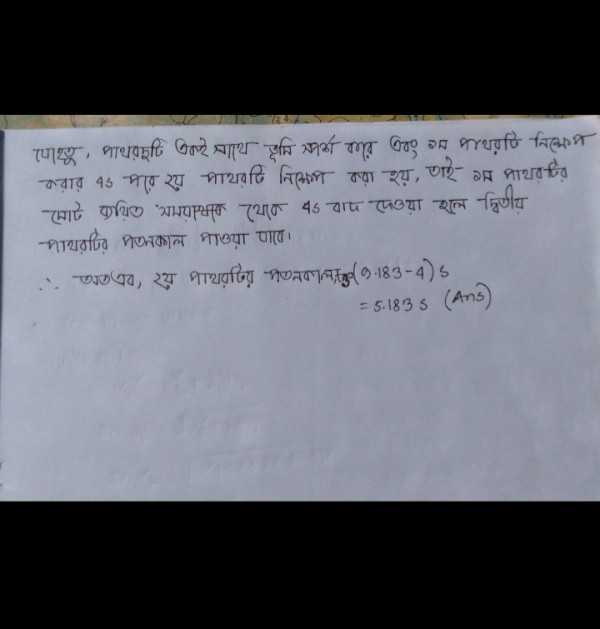 যেহেতু, পাথরদুটি একই সাথে ভূমি স্পর্শ করে এবং ১ম পাথরটি নিক্ষেপ
করার 4s পরে ২য় পাথরটি নিক্ষেপ করা হয়, তাই ১ম পাথরটির
মোট ব্যয়িত সময় থেকে 4s বাদ দেওয়া হলে দ্বিতীয়
পাথরটির পতনকাল পাওয়া যাবে।
∴ অতএব, ২য় পাথরটির পতনকাল (9.183-4) s
= 5.183 s (Ans)